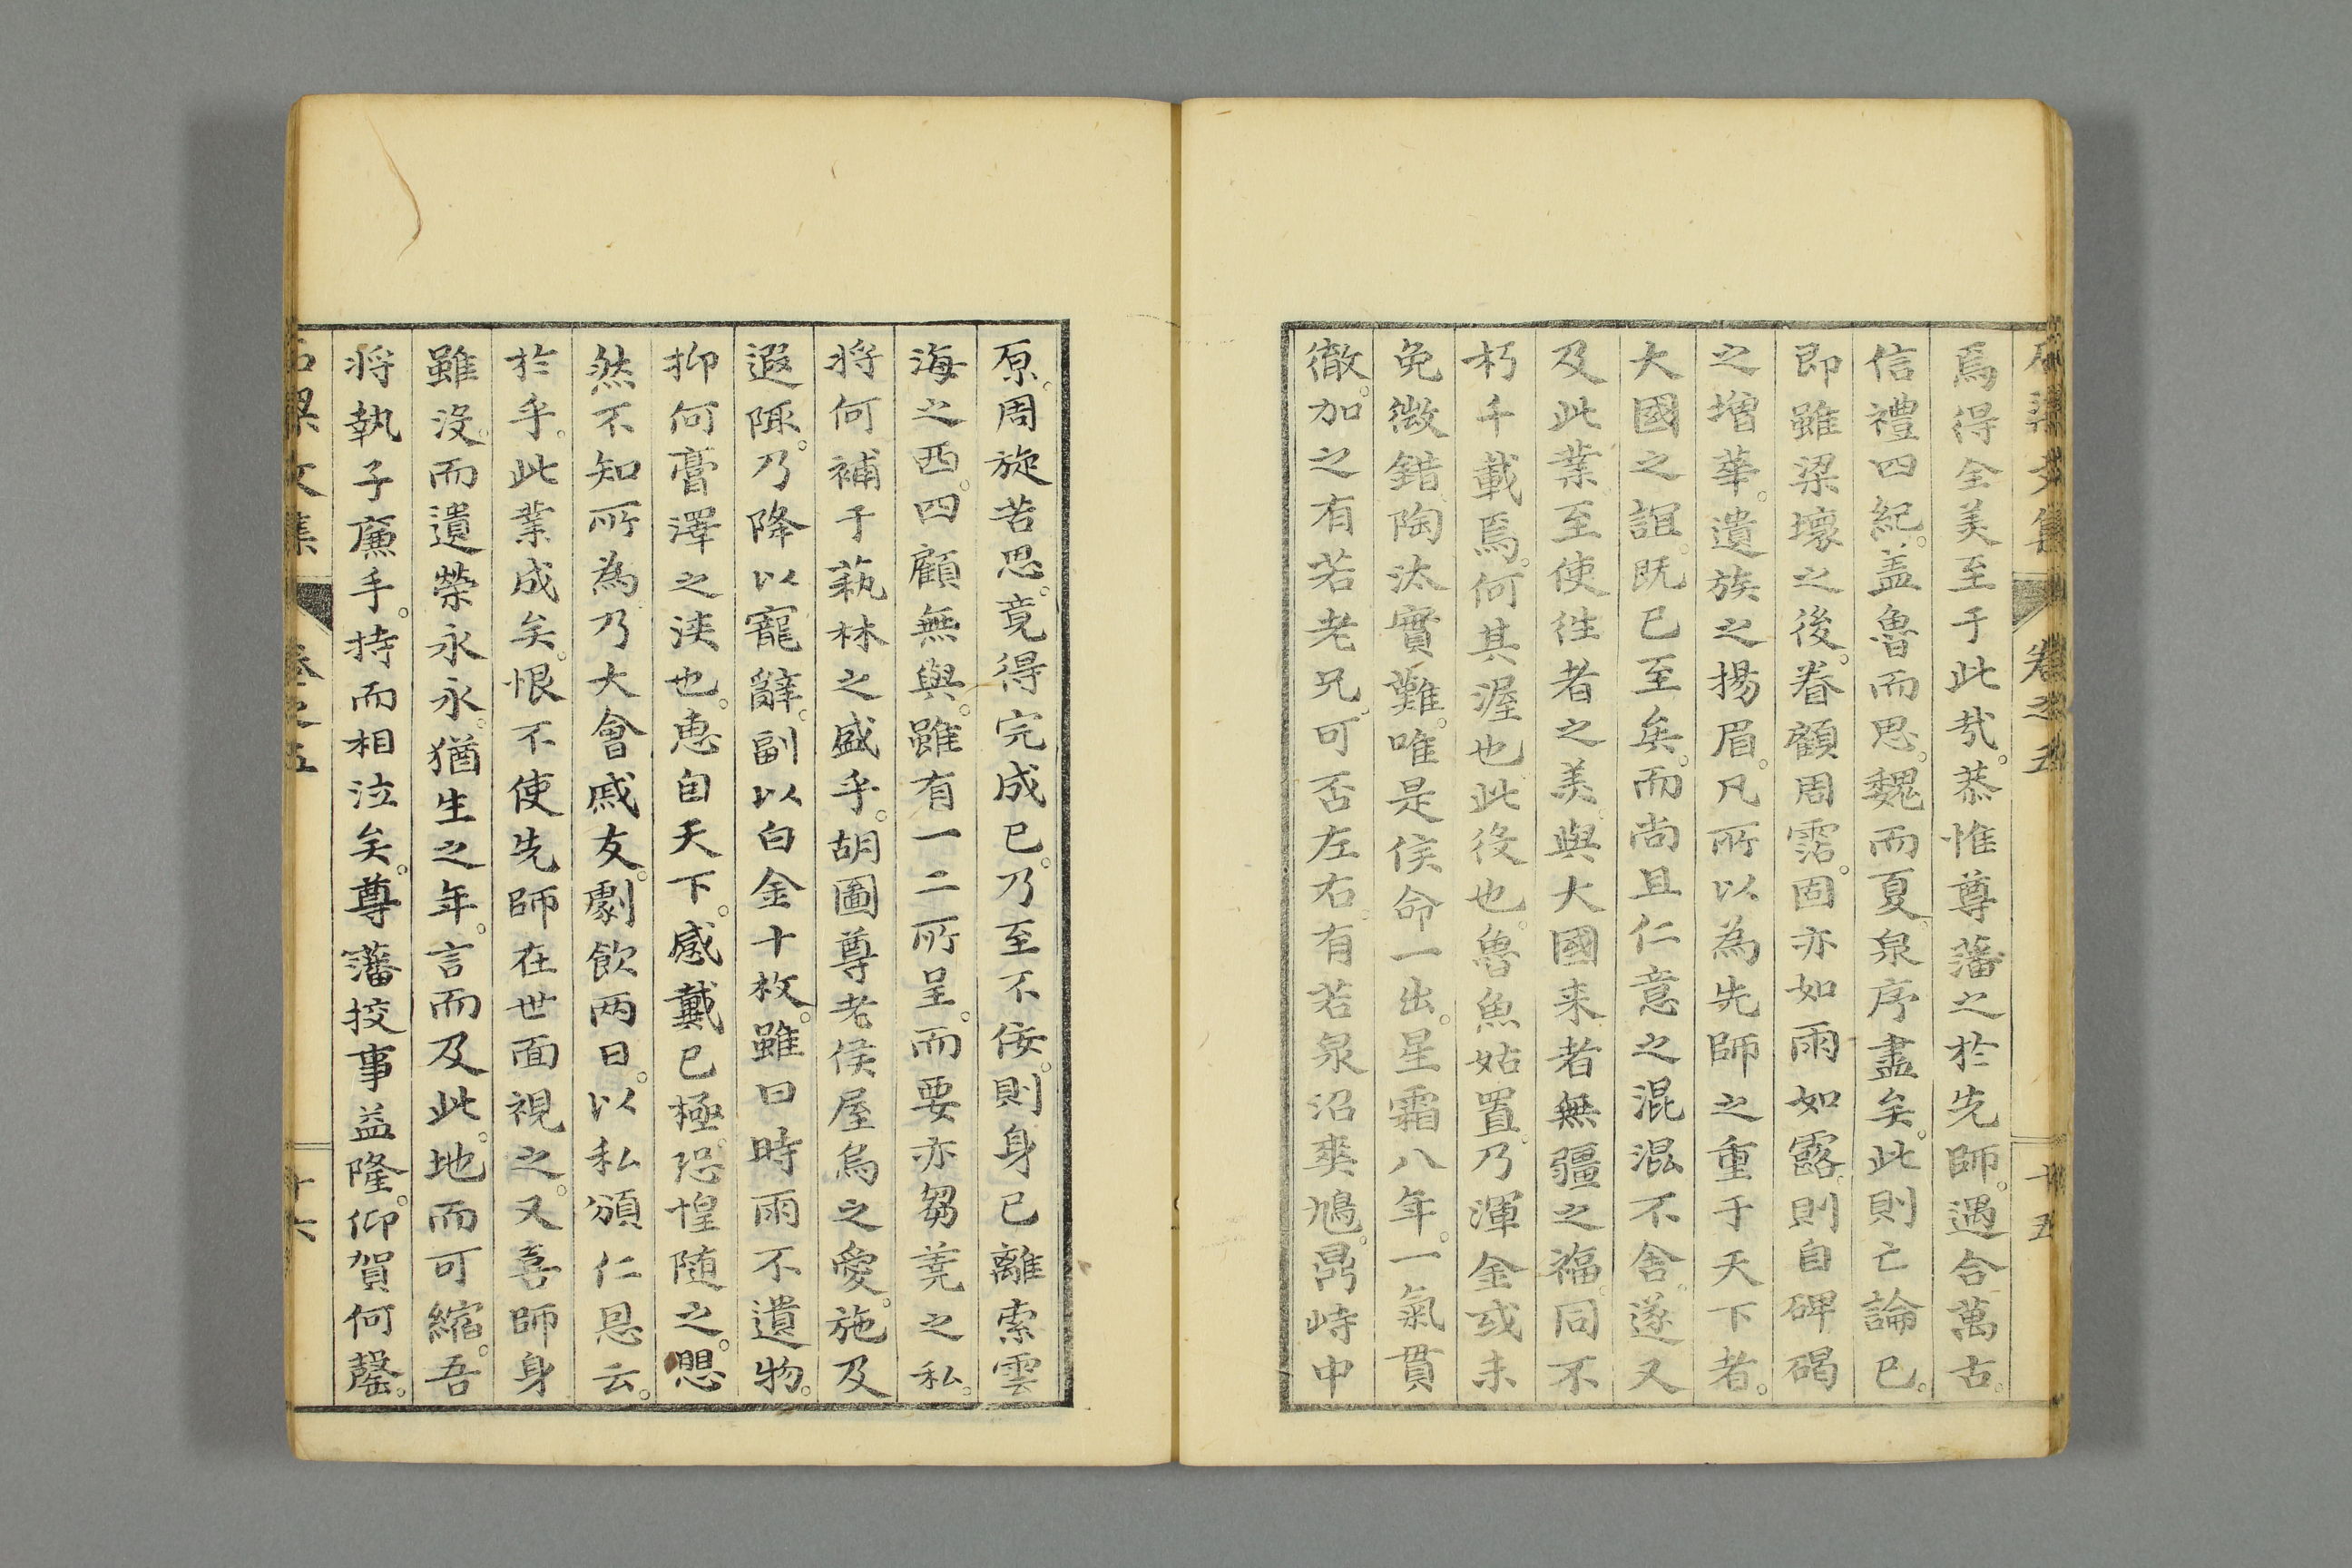 焉得全美至于此㢤。恭惟尊藩之於先師。遇合萬古。
信禮四紀。盖魯而思。魏而夏。泉序盡矣。此則亡論已。
即雖梁壞之後。眷顧周霑。固亦如雨如露。則自碑碣
之增華。遺族之揚眉。凡所以為先師之重于天下者。
大國之誼。既已至矣。而尚且仁意之混混不舍。遂又
及此業。至使徃者之美。與大國来者無疆之福。同不
朽千載焉。何其渥也。此後也。魯魚姑置。乃渾金或未
免微錯。陶汰實難。唯是侯命一出。星霜八年。一氣貫
徹。加之有若老兄。可否左右。有若泉沼爽鳩。鼎峙中
石梁文集 卷之五 十五
原。周旋若思。竟得完成已。乃至不佞。則身已離索雲
海之西。四顧無與。雖有一二所呈。而要亦芻蕘之私。
将何補于蓺林之盛乎。胡圖尊老侯屋烏之愛。施及
遐陬。乃降以寵辭。副以白金十枚。雖曰時雨不遺物。
抑何膏澤之浹也。惠自天下。感戴已極。恐惶随之。愳
然不知所為。乃大會戚友。劇飲两日。以私頒仁恩云。
於乎。此業成矣。恨不使先師在世面視之。又喜師身
雖沒。而遺榮永永。猶生之年。言而及此。地而可縮。吾
将執子廉手。持而相泣矣。尊藩挍事益隆。仰賀何罄。
石梁文集 卷之五 十六